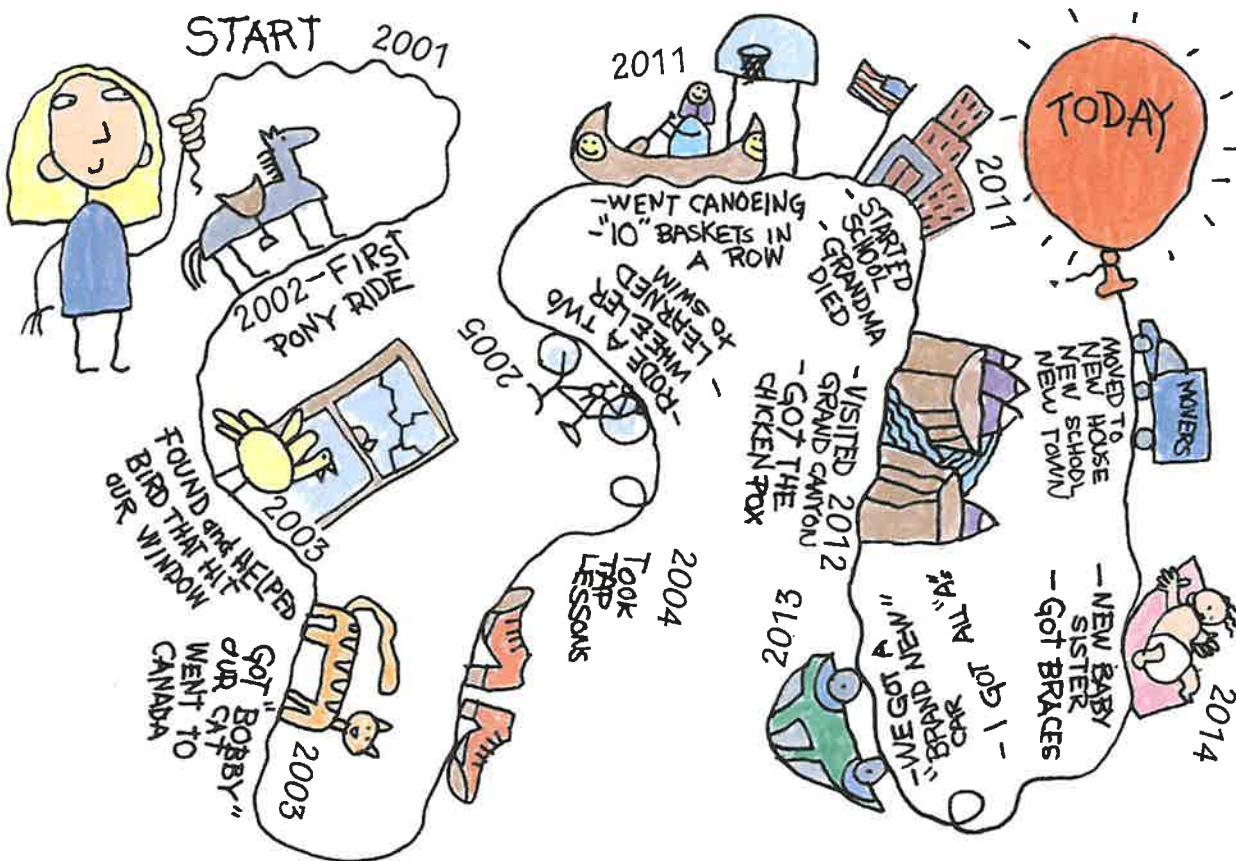 START
2001
2002-FIRST
PONY RIDE
FOUND and HELPED
BIRD THAT HIT
OUR WINDOW
2003
GOT "BOBBY"
OUR CAT
WENT TO
CANADA
2003
2004
TOOK
TAP
LESSONS
2005
-RODE A TWO
WHEELER
- LEARNED
to SWIM
2011
-WENT CANOEING
-"10" BASKETS IN
A ROW
2011
-STARTED
SCHOOL
-GRANDMA
DIED
-VISITED 2012
GRAND CANYON
-GOT THE
CHICKEN POX
2013
-WE GOT A
"BRAND NEW"
CAR
- I GOT ALL "A"s
2014
-NEW BABY
SISTER
-GOT BRACES
MOVED TO
NEW HOUSE
NEW SCHOOL
NEW TOWN
MOVERS
TODAY